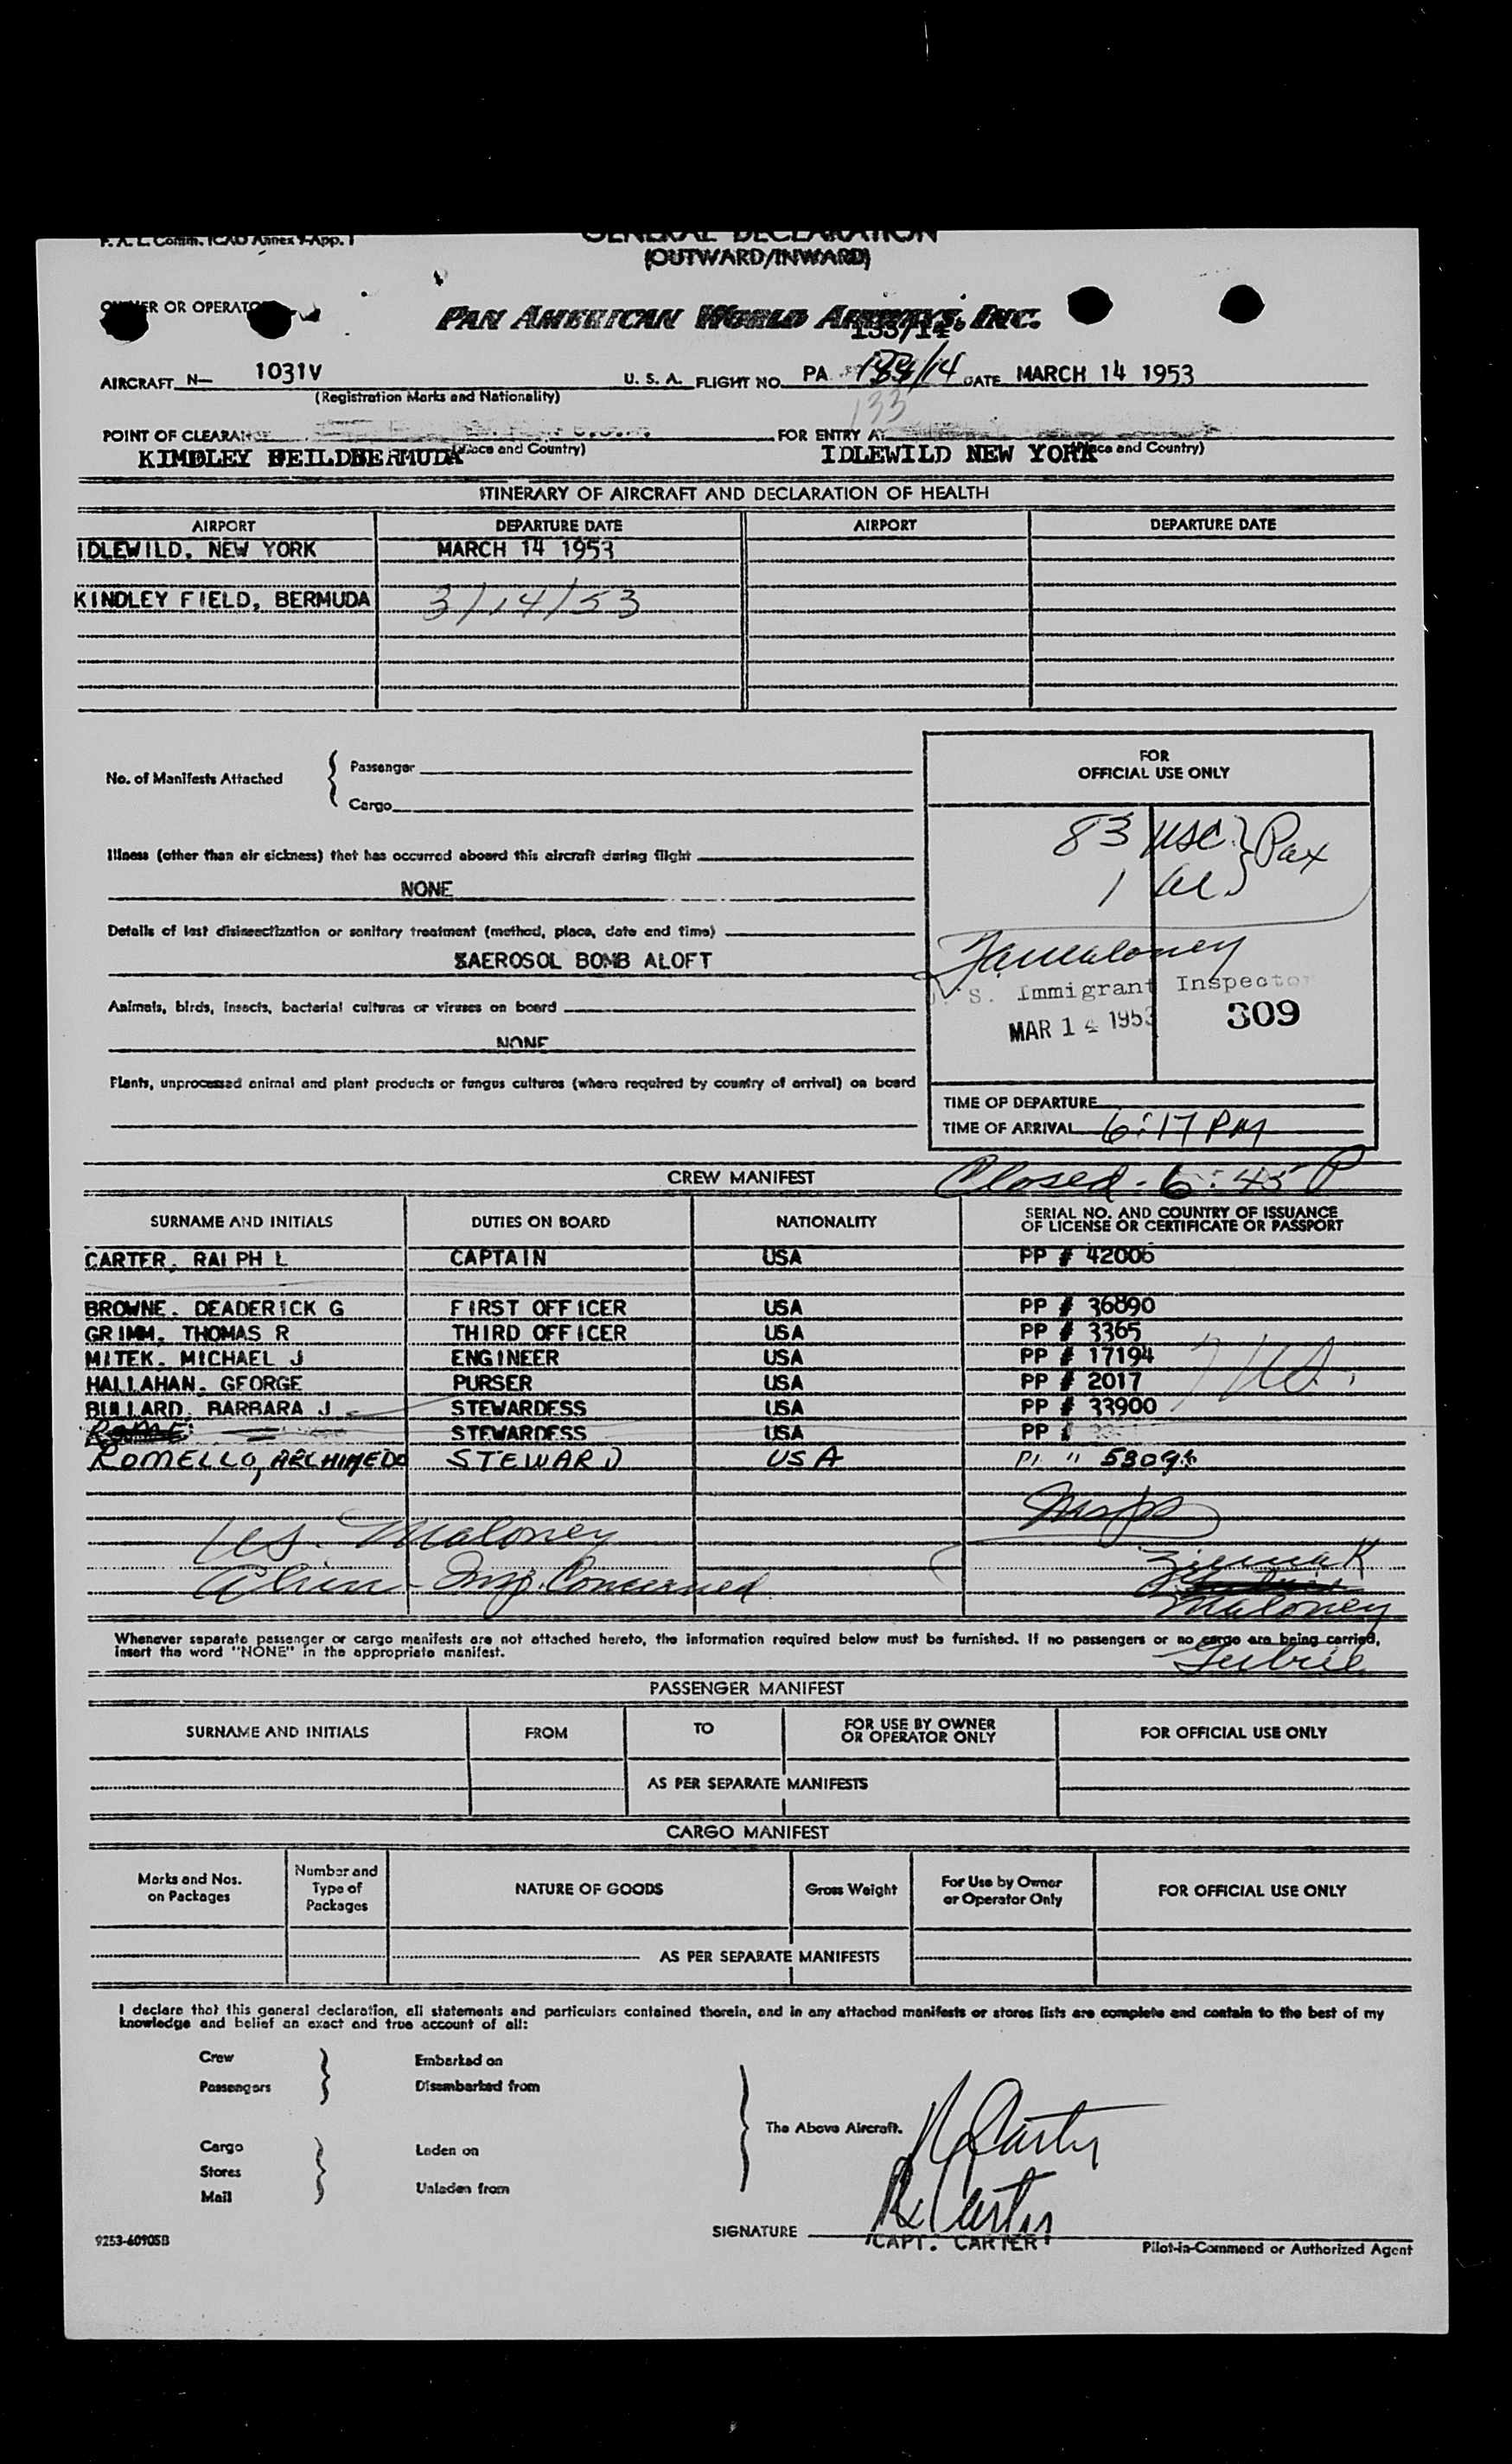 F. A. L. Comm. ICAO Annex 9-App. 1
GENERAL DECLARATION
(OUTWARD/INWARD)
OWNER OR OPERATOR
PAN AMERICAN WORLD AIRWAYS, INC.
133/14
AIRCRAFT N- 1031V U. S. A. FLIGHT NO. PA 133/14 DATE MARCH 14 1953
(Registration Marks and Nationality)
133
POINT OF CLEARANCE FOR ENTRY AT
(Place and Country) (Place and Country)
KIMDLEY BEILDBERMUDA IDLEWILD NEW YORK
ITINERARY OF AIRCRAFT AND DECLARATION OF HEALTH
AIRPORT DEPARTURE DATE AIRPORT DEPARTURE DATE
IDLEWILD, NEW YORK MARCH 14 1953
KINDLEY FIELD, BERMUDA 3/14/53
No. of Manifests Attached
Passenger
Cargo
FOR
OFFICIAL USE ONLY
83 USC } Pax
1 al
Illness (other than air sickness) that has occurred aboard this aircraft during flight
NONE
Details of last disinsectization or sanitary treatment (method, place, date and time)
AEROSOL BOMB ALOFT
Maloney
U. S. Immigrant Inspector
MAR 14 1953 309
Animals, birds, insects, bacterial cultures or viruses on board
NONE
Plants, unprocessed animal and plant products or fungus cultures (where required by country of arrival) on board
TIME OF DEPARTURE
TIME OF ARRIVAL 6:17 PM
CREW MANIFEST Closed - 6:45 P
SURNAME AND INITIALS DUTIES ON BOARD NATIONALITY SERIAL NO. AND COUNTRY OF ISSUANCE
OF LICENSE OR CERTIFICATE OR PASSPORT
CARTER, RALPH L CAPTAIN USA PP # 42006
BROWNE, DEADERICK G FIRST OFFICER USA PP # 36890
GRIMM, THOMAS R THIRD OFFICER USA PP # 3365
MITEK, MICHAEL J ENGINEER USA PP # 17194
HALLAHAN, GEORGE PURSER USA PP # 2017
BULLARD, BARBARA J STEWARDESS USA PP # 33900
STEWARDESS USA PP
ROMELLO, ARCHIMEDO STEWARD USA PP " 53098
US. Maloney
Alien - Insp. Concerned
Insps
Maloney
Whenever separate passenger or cargo manifests are not attached hereto, the information required below must be furnished. If no passengers or no cargo are being carried,
insert the word "NONE" in the appropriate manifest.
PASSENGER MANIFEST
SURNAME AND INITIALS FROM TO FOR USE BY OWNER
OR OPERATOR ONLY FOR OFFICIAL USE ONLY
AS PER SEPARATE MANIFESTS
CARGO MANIFEST
Marks and Nos.
on Packages
Number and
Type of
Packages
NATURE OF GOODS Gross Weight
For Use by Owner
or Operator Only
FOR OFFICIAL USE ONLY
AS PER SEPARATE MANIFESTS
I declare that this general declaration, all statements and particulars contained therein, and in any attached manifests or stores lists are complete and contain to the best of my
knowledge and belief an exact and true account of all:
Crew Embarked on
Passengers Disembarked from
The Above Aircraft.
R Carter
Cargo Laden on
Stores
Mail Unladen from
R Carter
SIGNATURE
"CAPT. CARTER"
9253-60905B
Pilot-in-Command or Authorized Agent